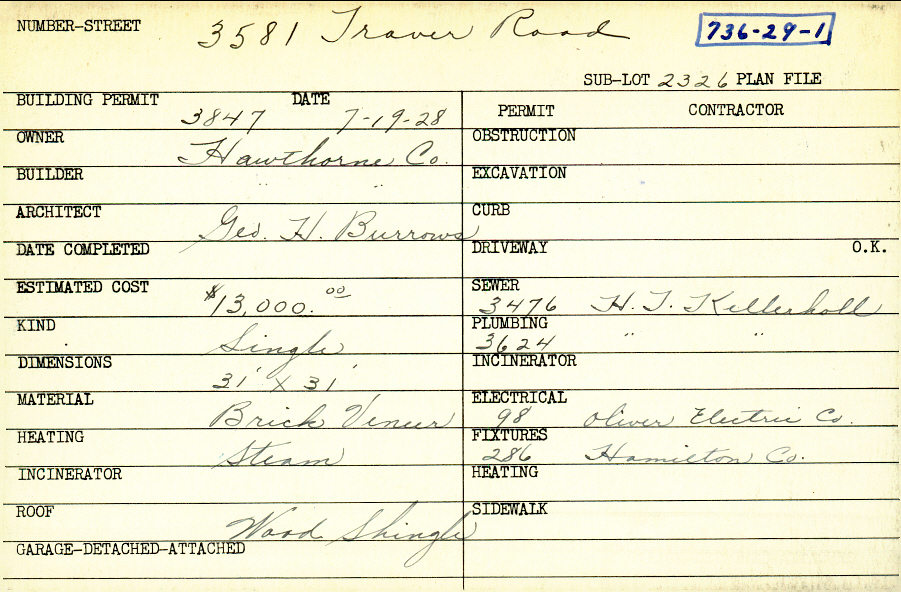 NUMBER-STREET 3581 Traver Road 736-29-1
SUB-LOT 2326 PLAN FILE
BUILDING PERMIT 3847 DATE 7-19-28
OWNER Hawthorne Co.
BUILDER " "
ARCHITECT Geo. H. Burrows
DATE COMPLETED
ESTIMATED COST $13,000.00
KIND Single
DIMENSIONS 31' X 31'
MATERIAL Brick Veneer
HEATING Steam
INCINERATOR
ROOF Wood Shingle
GARAGE-DETACHED-ATTACHED
PERMIT CONTRACTOR
OBSTRUCTION
EXCAVATION
CURB
DRIVEWAY O.K.
SEWER 3476 H. J. Killerholl
PLUMBING 3624 " "
INCINERATOR
ELECTRICAL 98 Oliver Electric Co.
FIXTURES 286 Hamilton Co.
HEATING
SIDEWALK